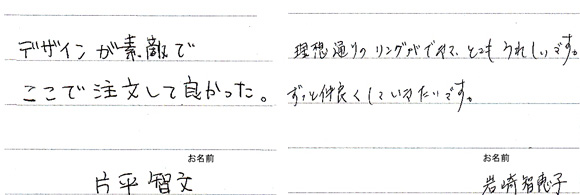 デザインが素敵で
ここで注文して良かった。
お名前
片平智文
理想通りのリングができて、とてもうれしいです。
ずっと仲良くしていきたいです。
お名前
岩崎智恵子